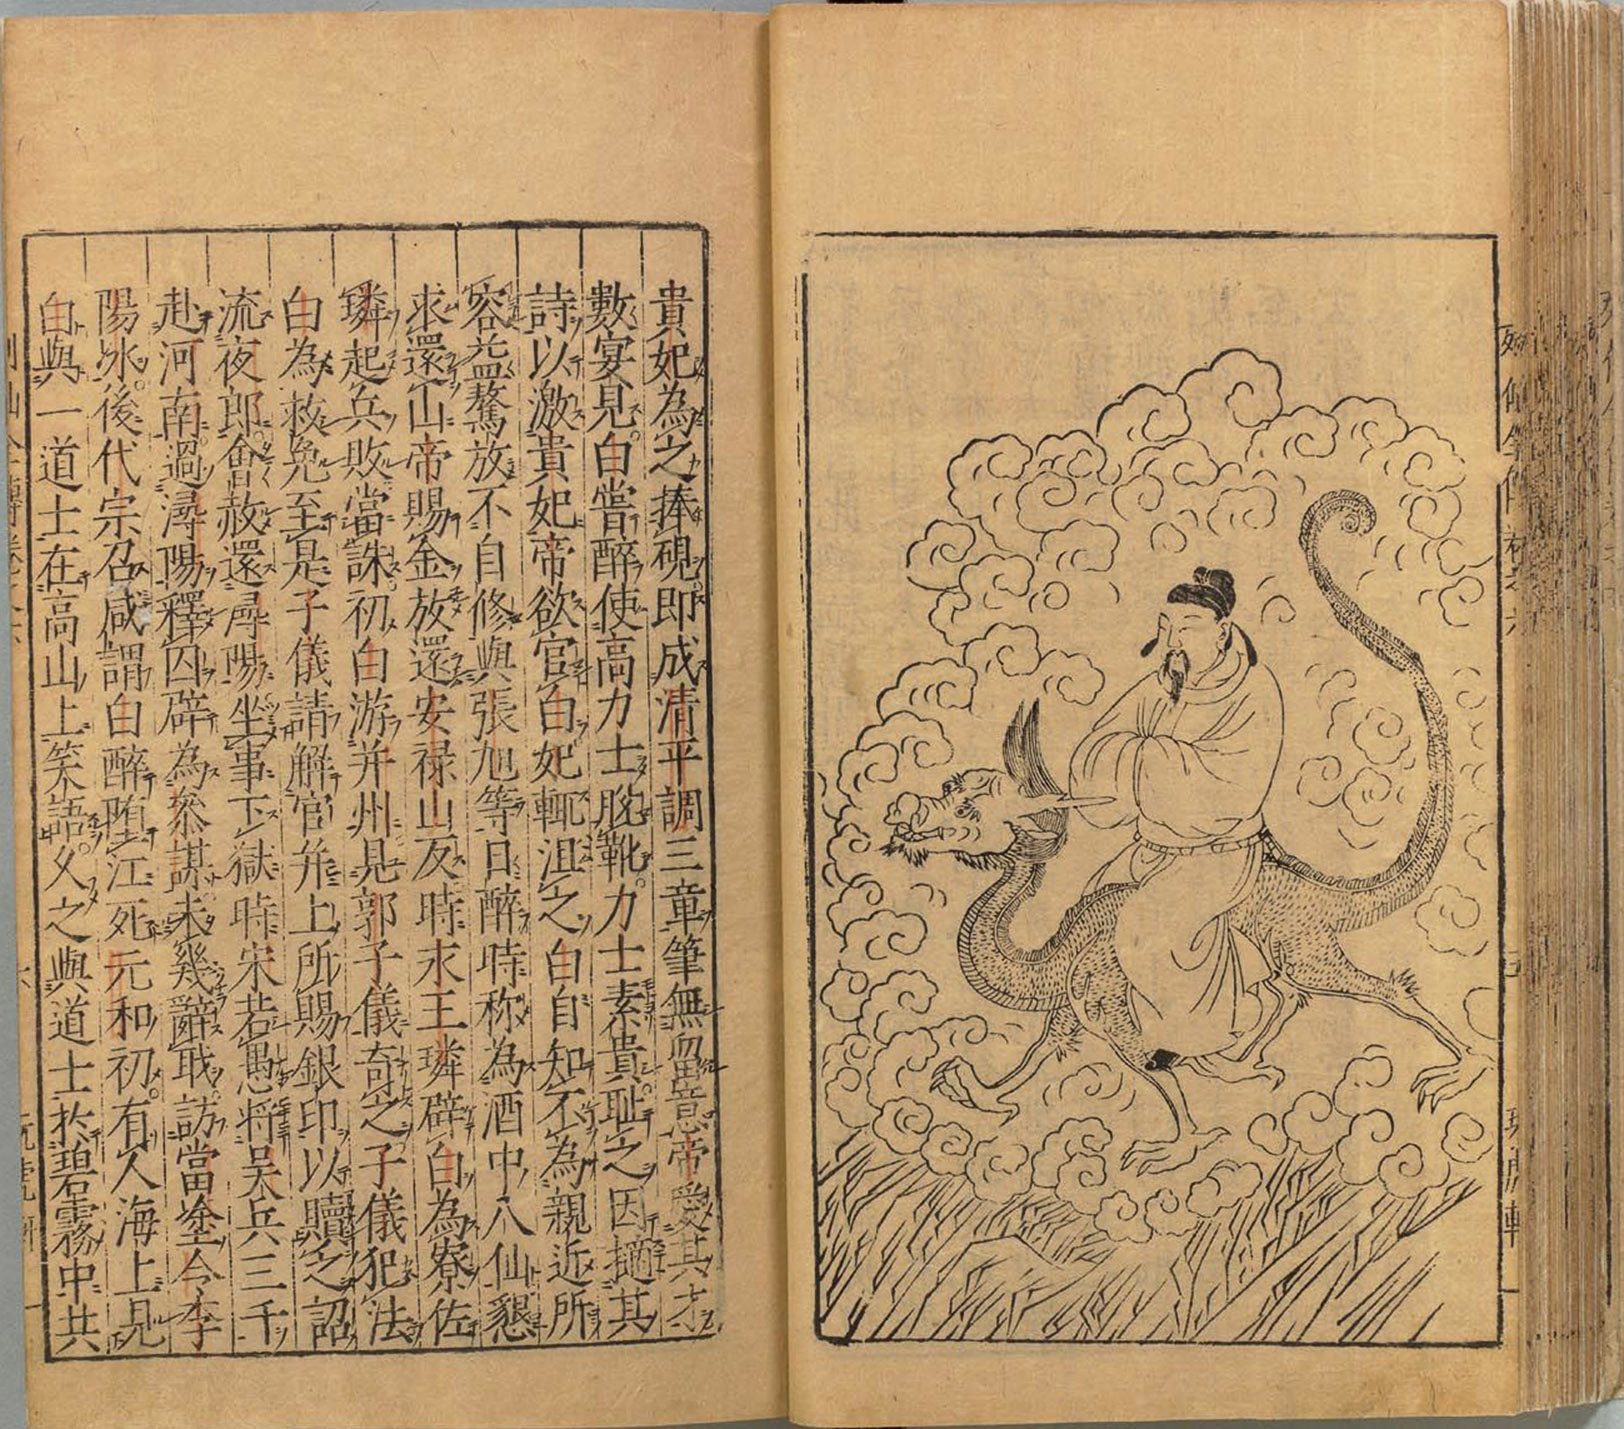 貴妃為之捧硯即成清平調三章筆無留意帝愛其才
數宴見白嘗醉使高力士脫靴力士素貴恥之因擿其
詩以激貴妃帝欲官白妃輒沮之白自知不為親近所
容益驁放不自修與張旭等日醉時称為酒中八仙懇
求還山帝賜金放還安禄山反時永王璘辟白為寮佐
璘起兵敗當誅初白游并州見郭子儀奇之子儀犯法
白為救免至是子儀請解官并上所賜銀印以贖之詔
流夜郎會赦還潯陽坐事下獄時宋若愚將吴兵三千
赴河南過潯陽釋囚辟為叅謀未幾辭戢訪當塗令李
陽冰後代宗召咸謂白醉墮江死元和初有人海上見
白與一道士在高山上笑語乆之與道士於碧霧中共